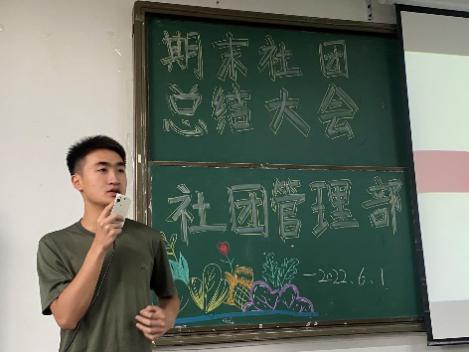 期末社团
总结大会
社团管理部
—2022.6.1